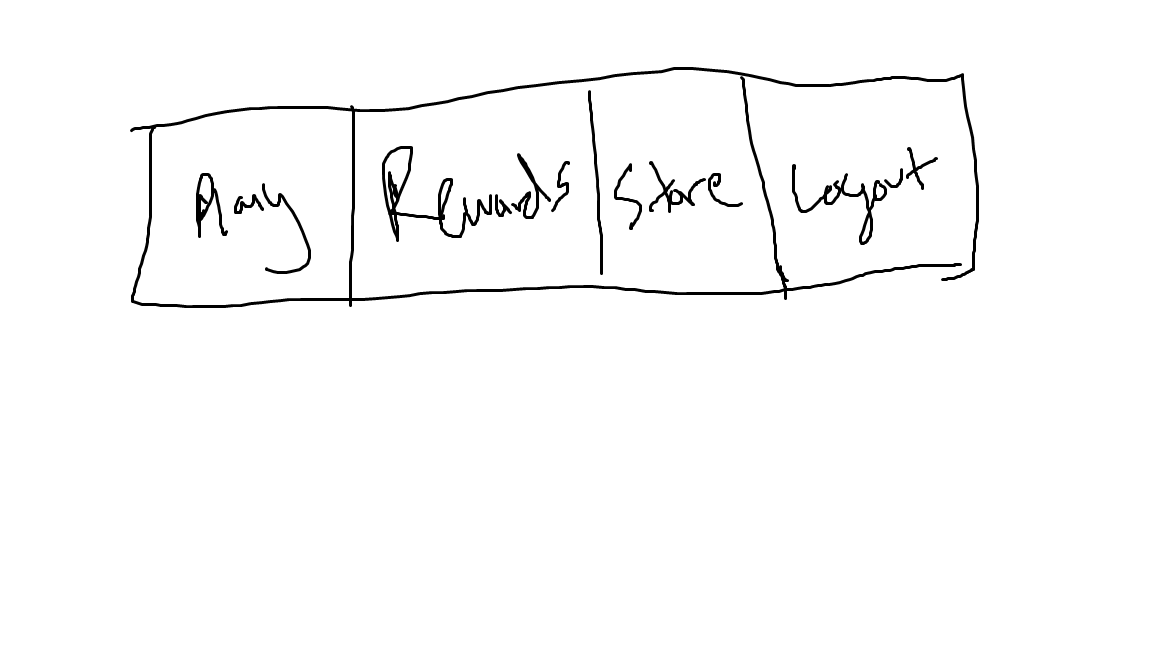 Play Rewards Store Logout